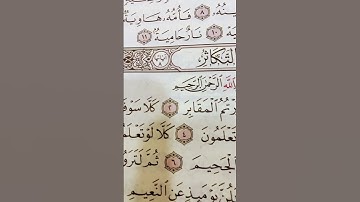 ٨ فَأُمُّهُ هَاوِيَةٌ
١٠ نَارٌ حَامِيَةٌ ١١
التَّكَاثُرِ
اللَّهِ الرَّحْمَٰنِ الرَّحِيمِ
زُرْتُمُ الْمَقَابِرَ ٢ كَلَّا سَوْفَ
تَعْلَمُونَ ٤ كَلَّا لَوْ تَعْلَمُ
الْجَحِيمَ ٦ ثُمَّ لَتَرَوُ
يَوْمَئِذٍ عَنِ النَّعِيمِ